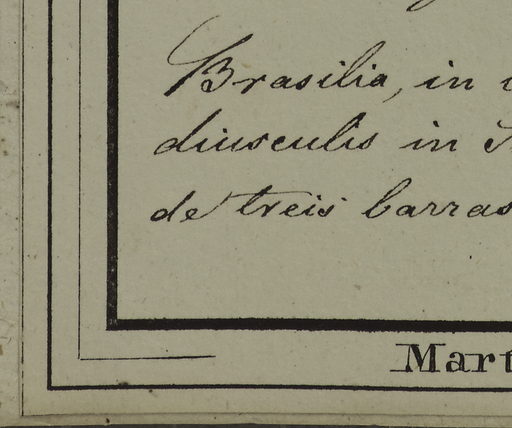 Brasilia, in
diusculis in
de treis barras
Mart